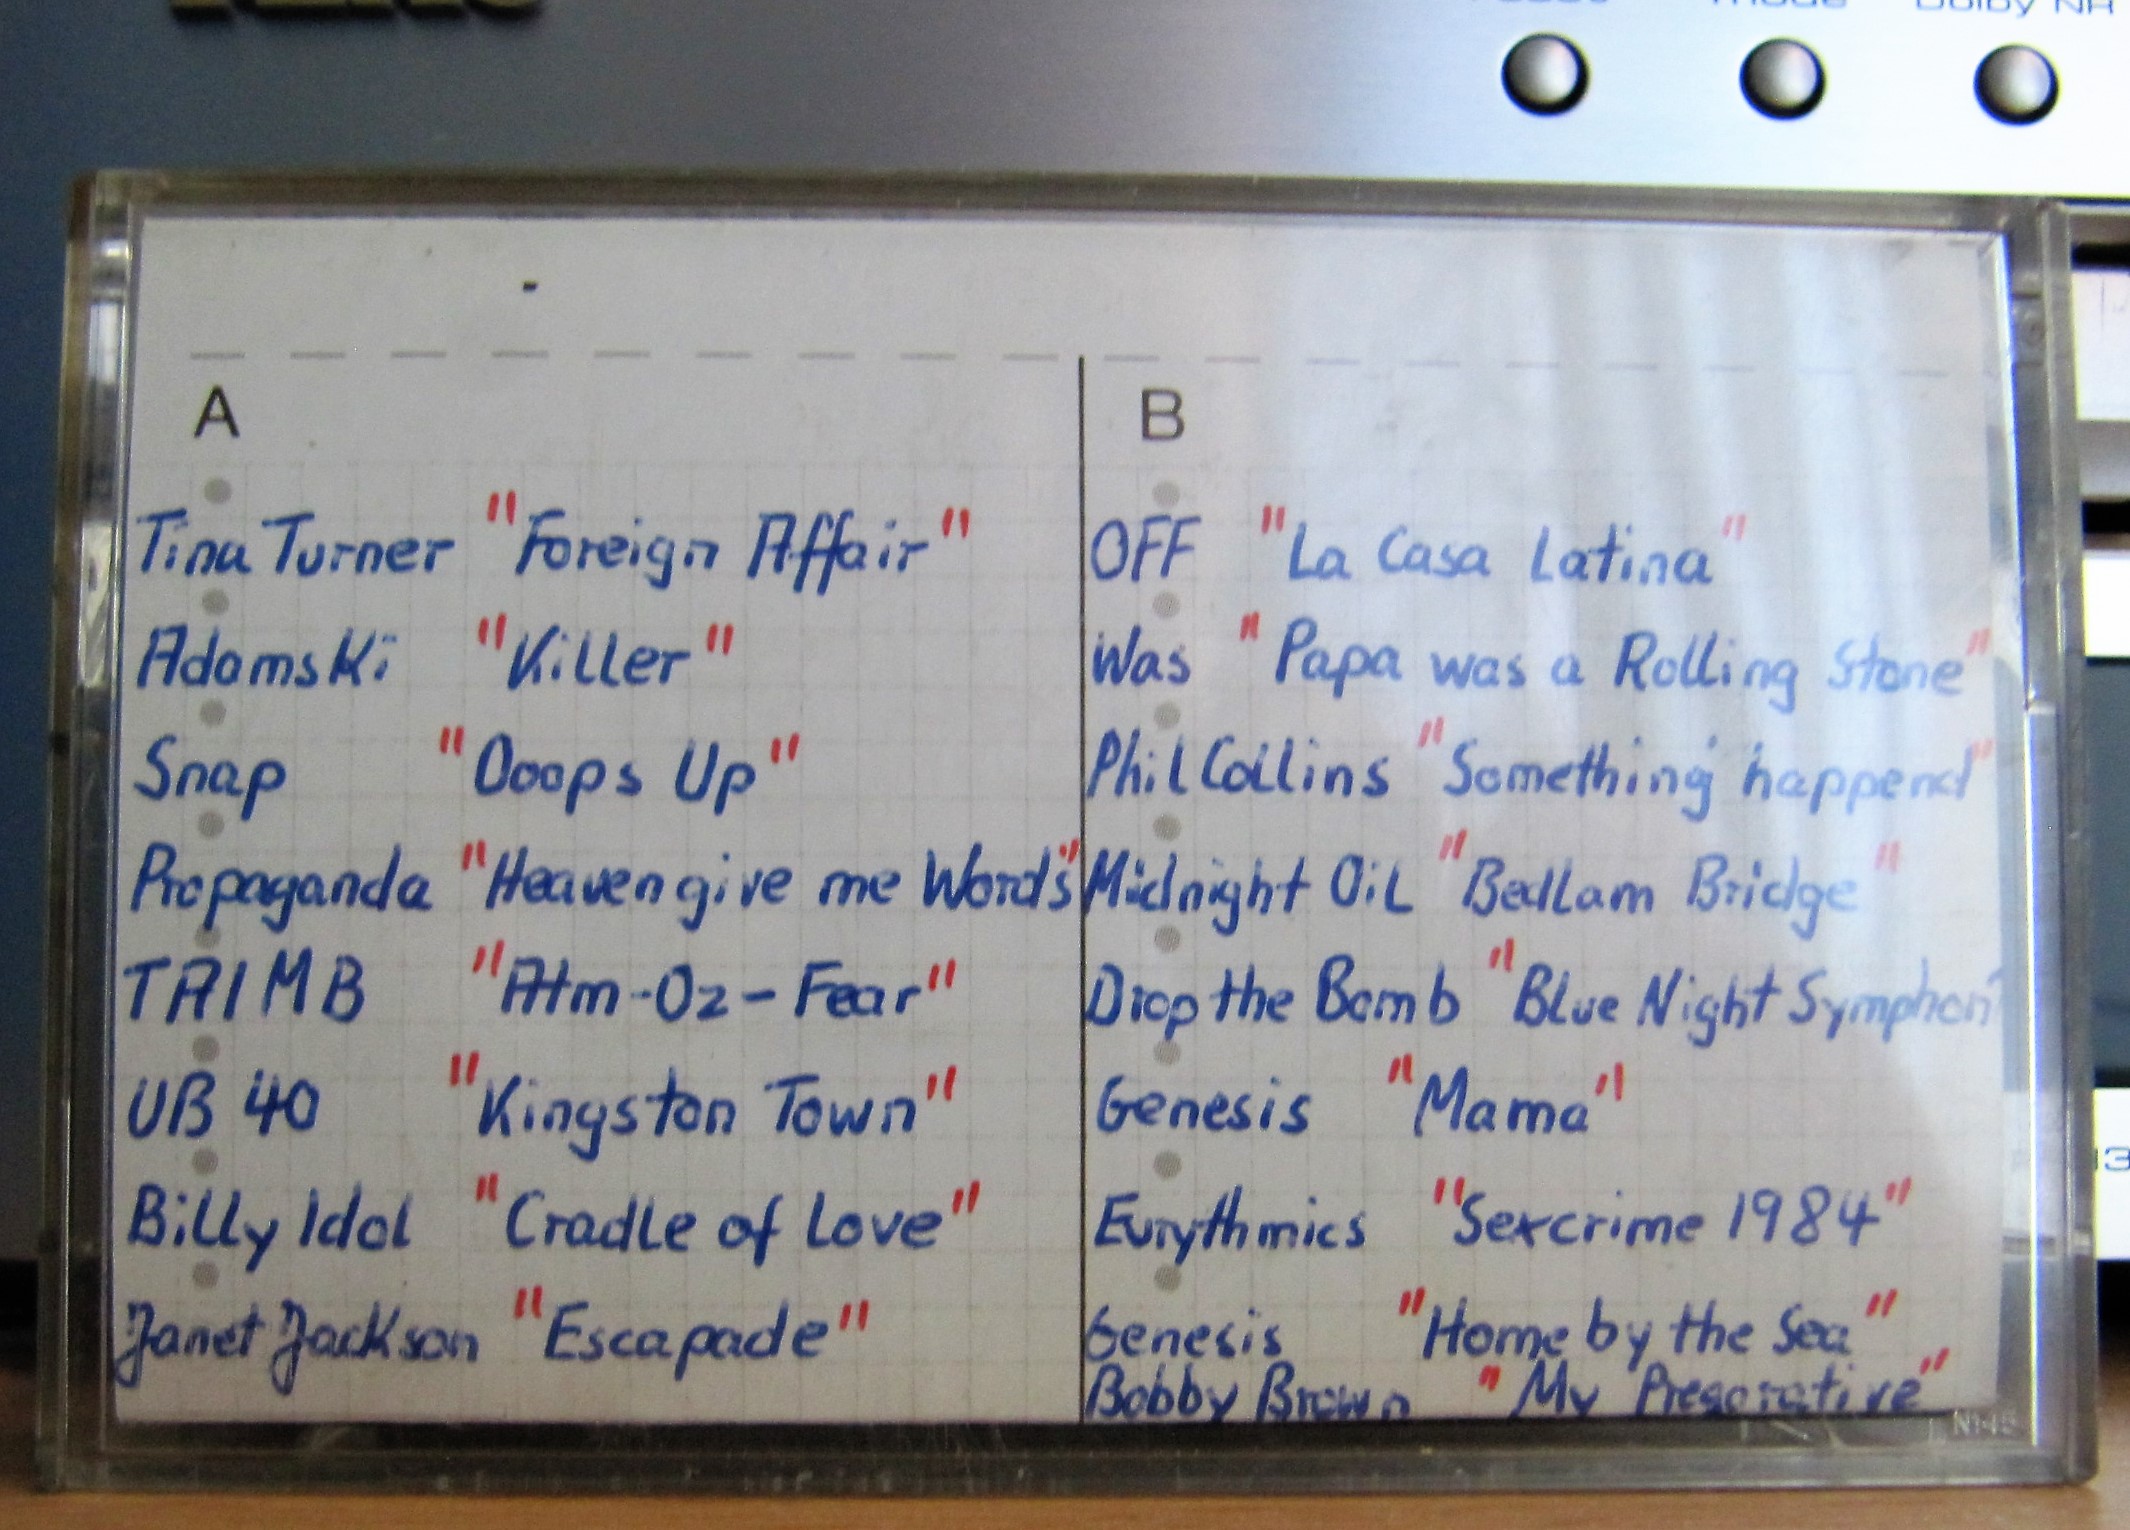 mode Dolby NR
A
Tina Turner "Foreign Affair"
Adamski "Killer"
Snap "Ooops Up"
Propaganda "Heaven give me Words"
TAIMB "Atm-Oz-Fear"
UB 40 "Kingston Town"
Billy Idol "Cradle of Love"
Janet Jackson "Escapade"
B
OFF "La Casa Latina"
Was "Papa was a Rolling Stone"
Phil Collins "Something happend"
Midnight Oil "Bedlam Bridge"
Drop the Bomb "Blue Night Symphon
Genesis "Mama"
Eurythmics "Sexcrime 1984"
Genesis "Home by the Sea"
Bobby Brown "My Pregorative"